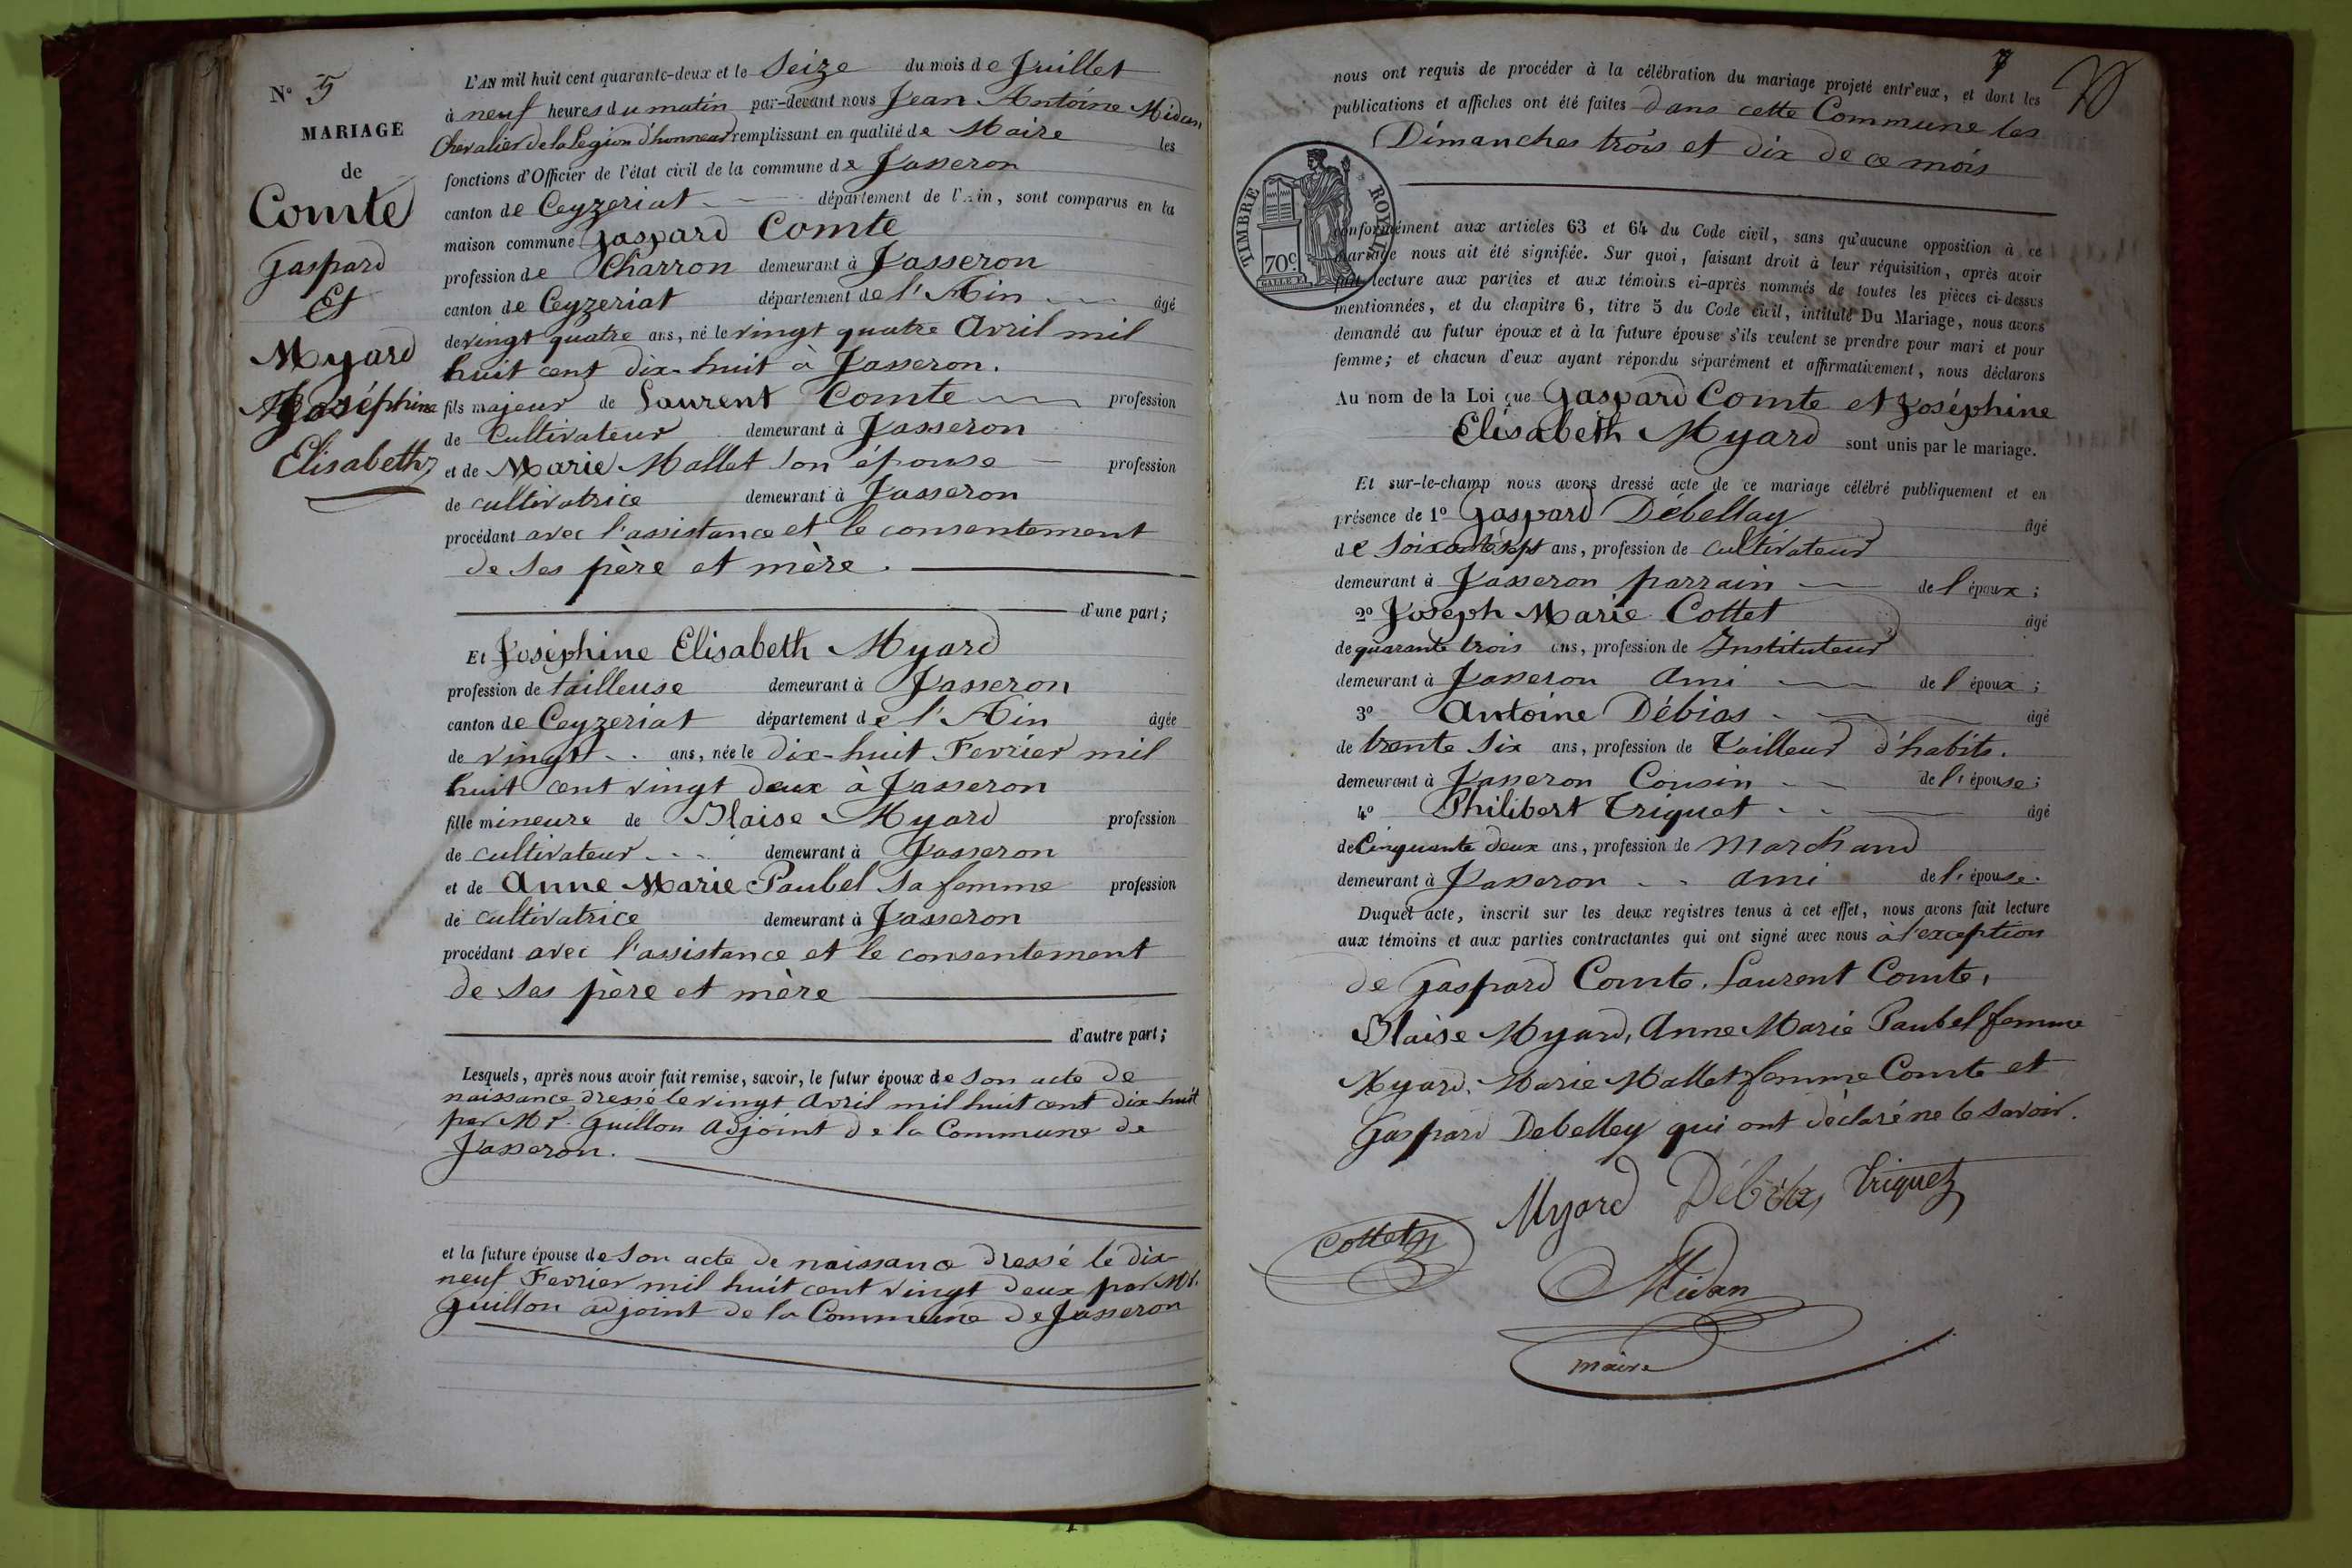 N° 5
MARIAGE
de
Comte
Gaspard
Et
Myard
Joséphine
Elisabeth
L'AN mil huit cent quarante-deux et le Seize du mois de Juillet
à neuf heures du matin par-devant nous Jean Antoine Midan
Chevalier de la Légion d'honneur remplissant en qualité de Maire les
fonctions d'Officier de l'état civil de la commune de Jasseron
canton de Ceyzeriat département de l'Ain, sont comparus en la
maison commune Gaspard Comte
profession de Charron demeurant à Jasseron
canton de Ceyzeriat département de l'Ain âgé
de vingt quatre ans, né le vingt quatre Avril mil
huit cent dix-huit à Jasseron.
fils majeur de Laurent Comte profession
de Cultivateur demeurant à Jasseron
et de Marie Mallet son épouse profession
de cultivatrice demeurant à Jasseron
procédant avec l'assistance et le consentement
de ses père et mère.
d'une part;
Et Joséphine Elisabeth Myard
profession de tailleuse demeurant à Jasseron
canton de Ceyzeriat département de l'Ain âgée
de vingt ans, née le dix-huit Fevrier mil
huit cent vingt deux à Jasseron
fille mineure de Blaise Myard profession
de cultivateur demeurant à Jasseron
et de Anne Marie Paubel sa femme profession
de cultivatrice demeurant à Jasseron
procédant avec l'assistance et le consentement
de ses père et mère
d'autre part;
Lesquels, après nous avoir fait remise, savoir, le futur époux de son acte de
naissance dressé le vingt Avril mil huit cent dix-huit
par Mr. Guillon Adjoint de la Commune de
Jasseron.
et la future épouse de son acte de naissance dressé le dix-
neuf Fevrier mil huit cent vingt deux par Mr.
Guillon adjoint de la Commune de Jasseron
7
nous ont requis de procéder à la célébration du mariage projeté entr'eux, et dont les
publications et affiches ont été faites dans cette Commune les
Dimanches trois et dix de ce mois
TIMBRE ROYAL
70c
conformément aux articles 63 et 64 du Code civil, sans qu'aucune opposition à ce
mariage nous ait été signifiée. Sur quoi, faisant droit à leur réquisition, après avoir
fait lecture aux parties et aux témoins ci-après nommés de toutes les pièces ci-dessus
mentionnées, et du chapitre 6, titre 5 du Code civil, intitulé Du Mariage, nous avons
demandé au futur époux et à la future épouse s'ils veulent se prendre pour mari et pour
femme; et chacun d'eux ayant répondu séparément et affirmativement, nous déclarons
Au nom de la Loi que Gaspard Comte et Joséphine
Elisabeth Myard sont unis par le mariage.
Et sur-le-champ nous avons dressé acte de ce mariage célébré publiquement et en
présence de 1° Gaspard Débellay âgé
de soixante sept ans, profession de cultivateur
demeurant à Jasseron parrain de l'époux;
2° Joseph Marie Cottet âgé
de quarante trois ans, profession de Instituteur
demeurant à Jasseron ami de l'époux;
3° Antoine Débias âgé
de trente six ans, profession de Tailleur d'habits.
demeurant à Jasseron Cousin de l'épouse;
4° Philibert Triquet âgé
de Cinquante deux ans, profession de Marchand
demeurant à Jasseron ami de l'épouse.
Duquel acte, inscrit sur les deux registres tenus à cet effet, nous avons fait lecture
aux témoins et aux parties contractantes qui ont signé avec nous à l'exception
de Gaspard Comte, Laurent Comte,
Blaise Myard, Anne Marie Paubel femme
Myard, Marie Mallet femme Comte et
Gaspard Debelley qui ont déclaré ne le savoir.
Myard Débias Triquet
Cottet
Midan
maire